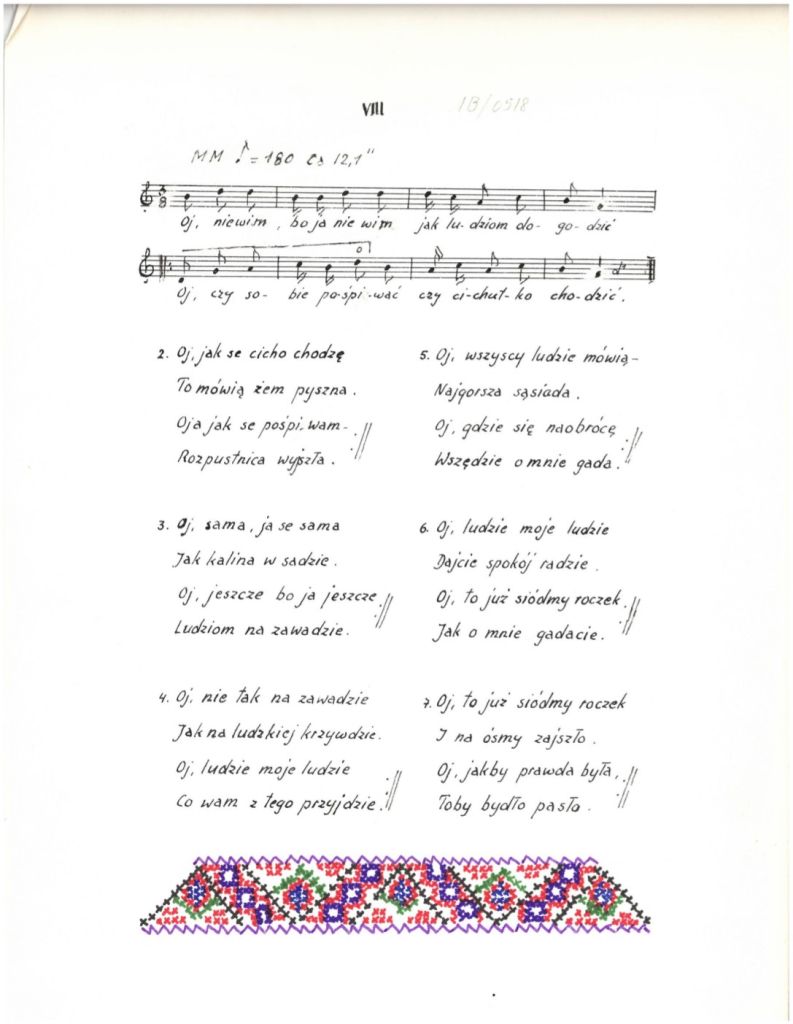 VIII
1B/0518
MM ♪ = 180 ca 12,1"
3
8
Oj, niewim, bo ja nie wim jak lu-dziom do-go-dzić
Oj, czy so-bie po-śpi-wać czy ci-chut-ko cho-dzić.
2. Oj, jak se cicho chodzę
To mówią żem pyszna.
Oja jak se pośpi-wam-
Rozpustnica wyjszła.
3. Oj, sama, ja se sama
Jak kalina w sadzie.
Oj, jeszcze bo ja jeszcze
Ludziom na zawadzie.
4. Oj, nie tak na zawadzie
Jak na ludzkiej krzywdzie.
Oj, ludzie moje ludzie
Co wam z tego przyjdzie.
5. Oj, wszyscy ludzie mówią-
Najgorsza sąsiada.
Oj, gdzie się naobrócę
Wszędzie o mnie gada.
6. Oj, ludzie moje ludzie
Dajcie spokój radzie.
Oj, to już siódmy roczek
Jak o mnie gadacie.
7. Oj, to już siódmy roczek
I na ósmy zajszło.
Oj, jakby prawda była,
Toby bydło pasła.